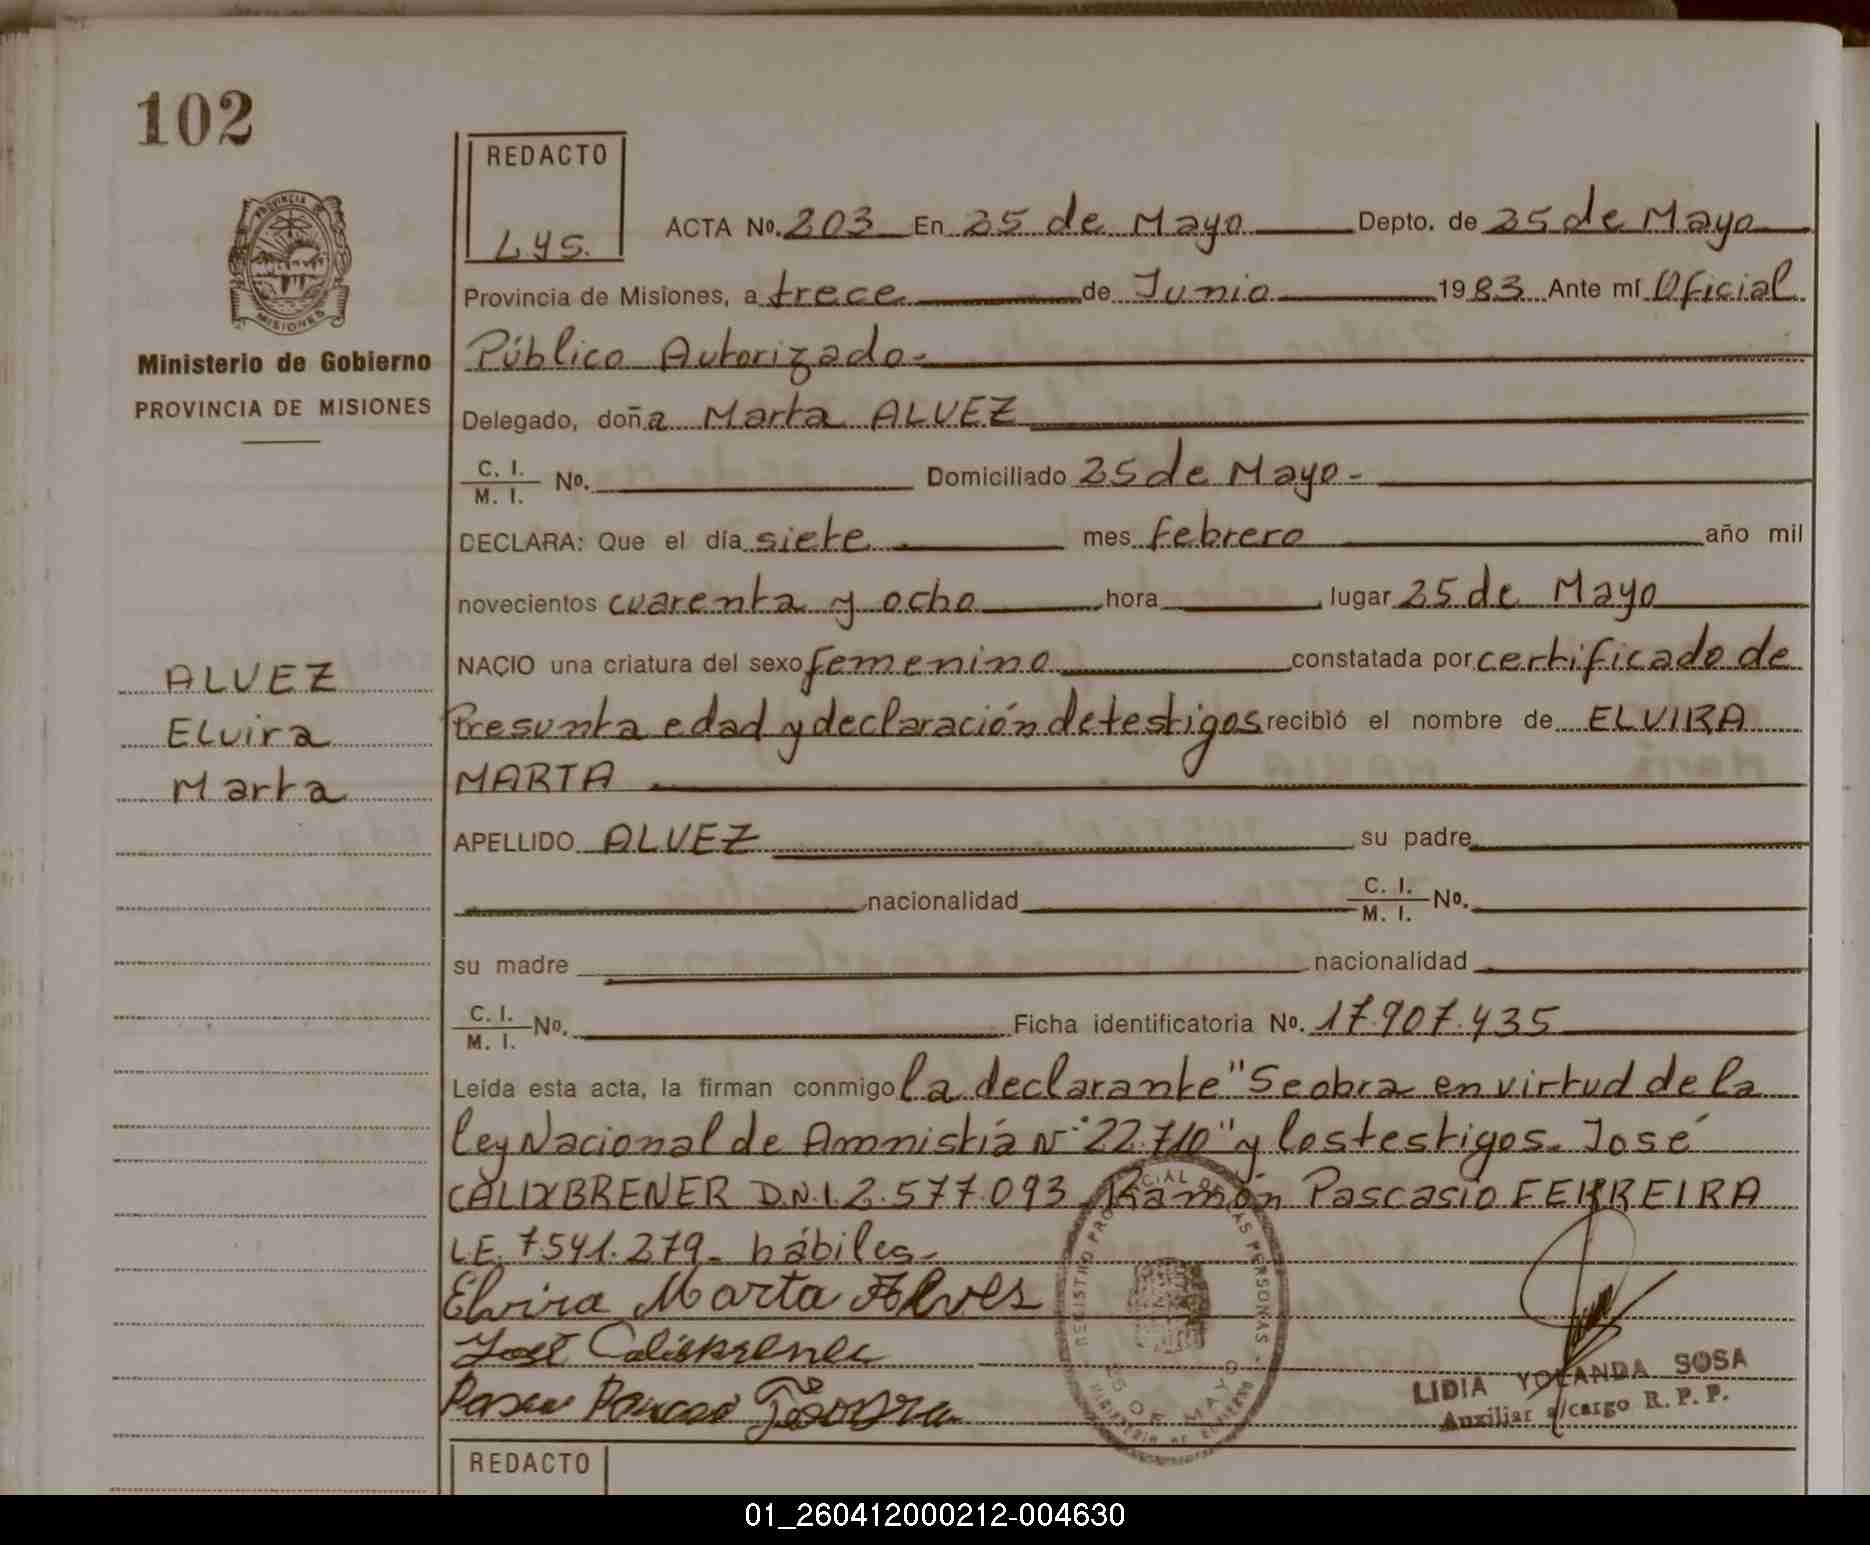 102
REDACTO
Lys.
ACTA Nº. 203 En 25 de Mayo Depto. de 25 de Mayo
Provincia de Misiones, a trece de Junio 1983 Ante mí Oficial
Público Autorizado.-
Ministerio de Gobierno
PROVINCIA DE MISIONES
Delegado, doña Marta ALVEZ
C. I. / M. I. Nº. Domiciliado 25 de Mayo-
DECLARA: Que el día siete mes febrero año mil
novecientos cuarenta y ocho hora lugar 25 de Mayo
ALVEZ
Elvira
Marta
NACIO una criatura del sexo femenino constatada por certificado de
Presunta edad y declaración de testigos recibió el nombre de ELVIRA
MARTA
APELLIDO ALVEZ su padre
nacionalidad C. I. / M. I. Nº.
su madre nacionalidad
C. I. / M. I. Nº. Ficha identificatoria Nº. 17.907.435
Leída esta acta, la firman conmigo la declarante "Se obra en virtud de la
ley Nacional de Amnistía Nº 22.710" y los testigos. José
CALIXBRENER D.N.I. 2.577.093 Ramón Pascasio FERREIRA
LE. 7541.279- hábiles-
Elvira Marta Alves
José Calisbrener
REGISTRO PROVINCIAL DE LAS PERSONAS
25 DE MAYO
MINISTERIO DE GOBIERNO
LIDIA YOLANDA SOSA
Auxiliar a/cargo R. P. P.
REDACTO
01_260412000212-004630